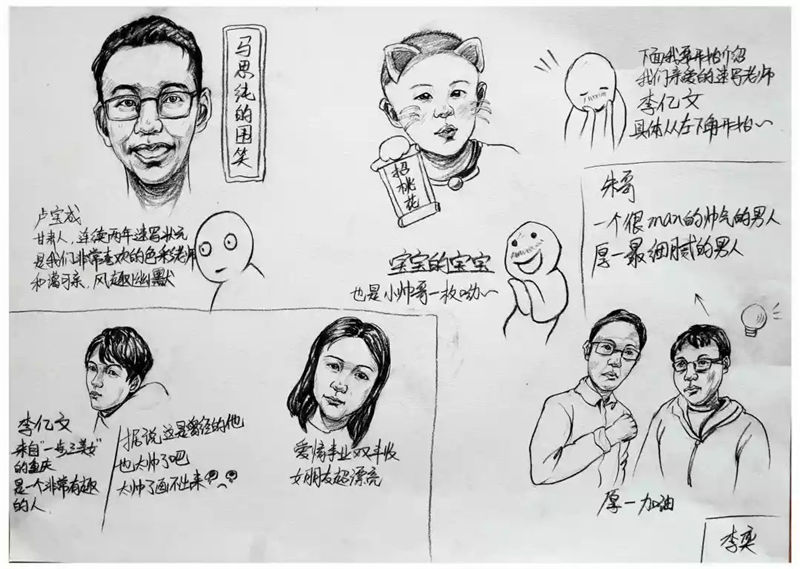 马思纯的困笑
卢宝成
甘肃人，连续两年速写状元
是我们非常喜欢的色彩老师
和蔼可亲，风趣幽默
招桃花
宝宝的宝宝
也是小帅哥一枚呦~
下面我要开始介绍
我们亲爱的速写老师
李亿文
具体从左下角开始~
朱哥
一个很man的帅气的男人
厚一最细腻的男人
李亿文
来自"一步三美女"
的重庆
是一个非常有趣
的人
据说这是曾经的他
也太帅了吧
太帅了画不出来
爱情事业双丰收
女朋友超漂亮
厚一加油
李奕